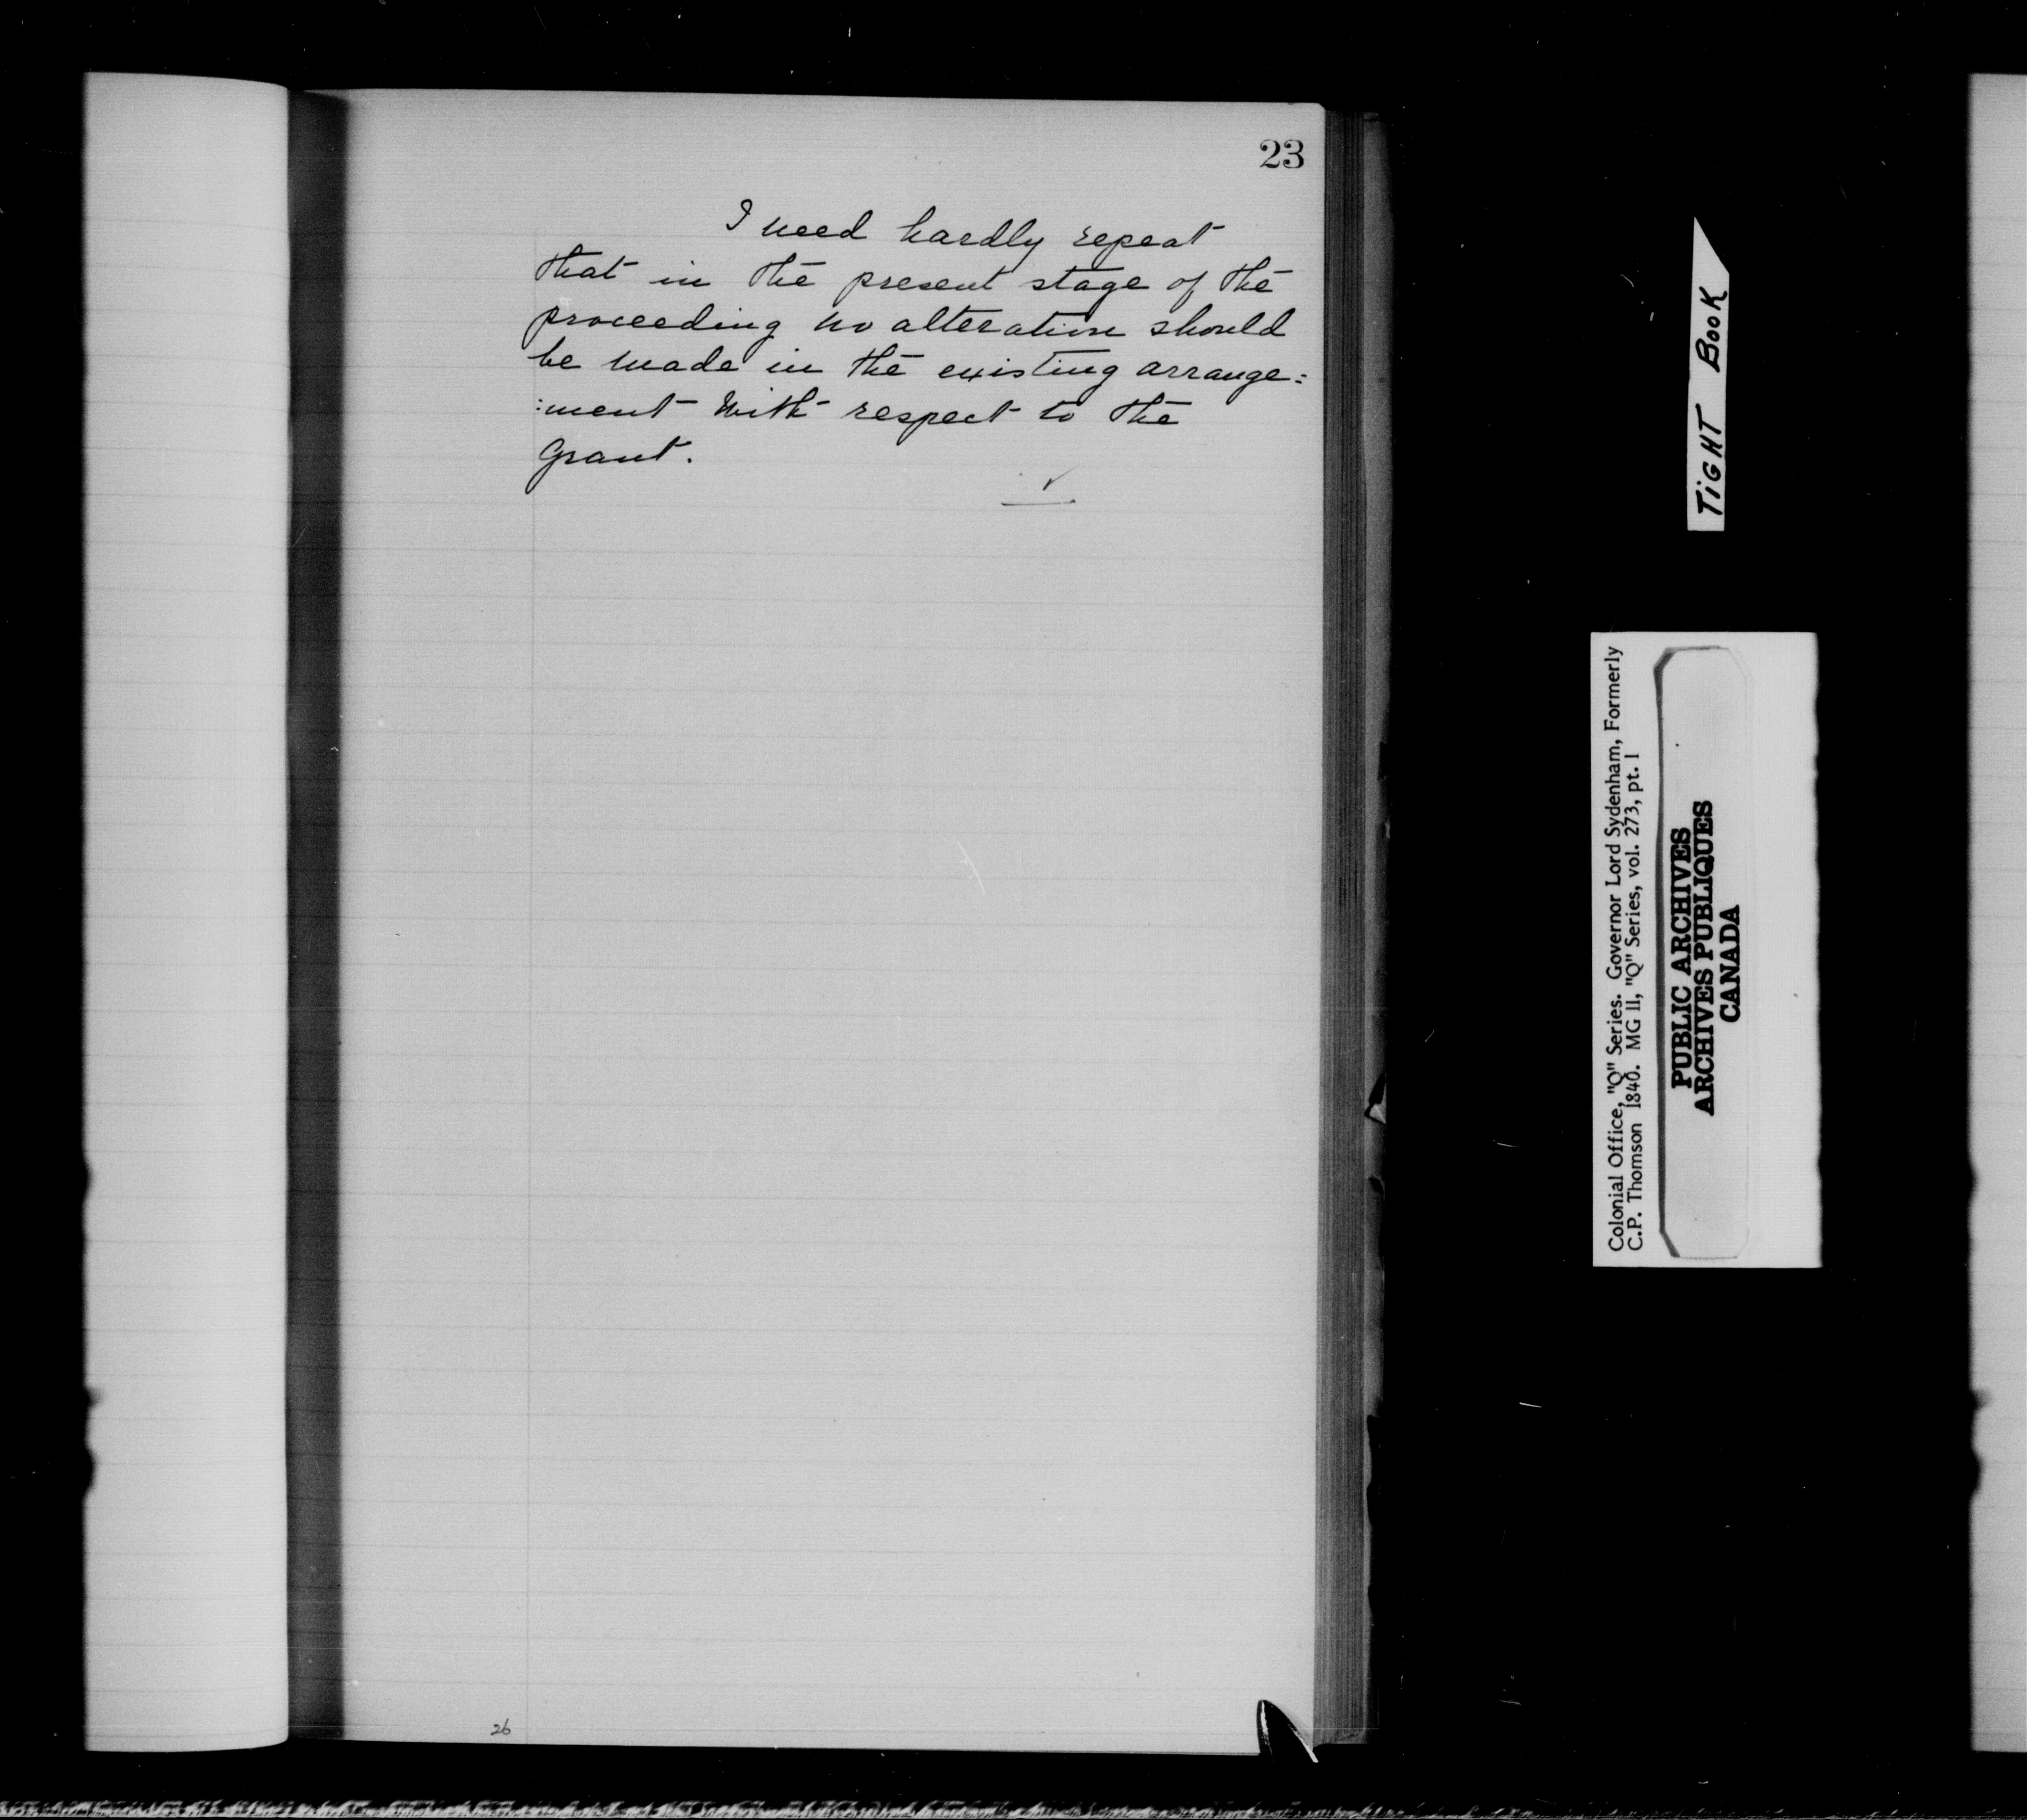 23
I need hardly repeat
that in the present stage of the
proceeding no alteration should
be made in the existing arrange:
:ment with respect to the
Grant.
26
TIGHT BOOK
Colonial Office, "Q" Series. Governor Lord Sydenham, Formerly
C.P. Thomson 1840. MG 11, "Q" Series, vol. 273, pt. 1
PUBLIC ARCHIVES
ARCHIVES PUBLIQUES
CANADA